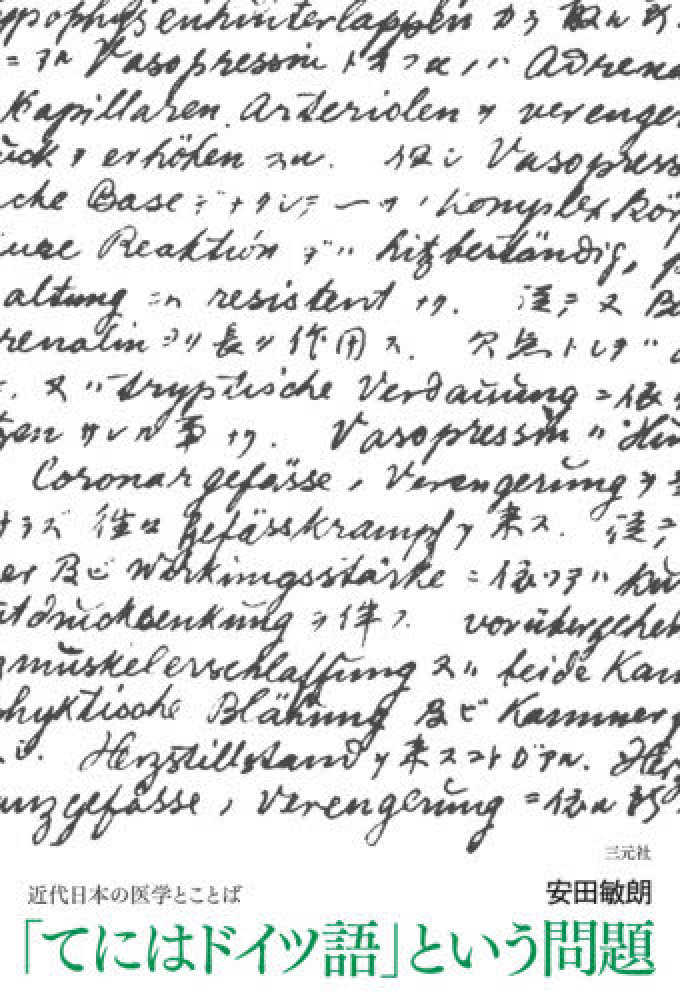 ypophysenhinterlappen から
ニテハ Vasopressin トオフ Adrena
Kapillaren. Arteriolen ヲ verenge
ück ヲ erhöhen スル. 但シ Vasopress
che Base デナクシテ一ツノ komplex Kör
ure Reaktion デハ hitzbeständig, p
altung ニハ resistent ナリ. 従ヲ又 B
renalin ヨリ長ク作用ス. 欠点トシテハ
. 又ハ tryptische Verdauung ニ依
zen サレル事ナリ. Vasopressin ハ
Coronargefässe ノ Verengerung ヲ
ナラズ 往々 Gefässkrampf ヲ来ス. 従ヲ
er 及ビ Wirkungsstärke ニ依ツテハ
tdrucksenkung ヲ伴フ. vorübergehen
muskelerschlaffung 又ハ beide Kam
phyktische Blähung 及ビ Kammer
Herzstillstand ヲ来ス
anzgefässe ノ Verengerung ニ依ル
三元社
近代日本の医学とことば
安田敏朗
「てにはドイツ語」という問題